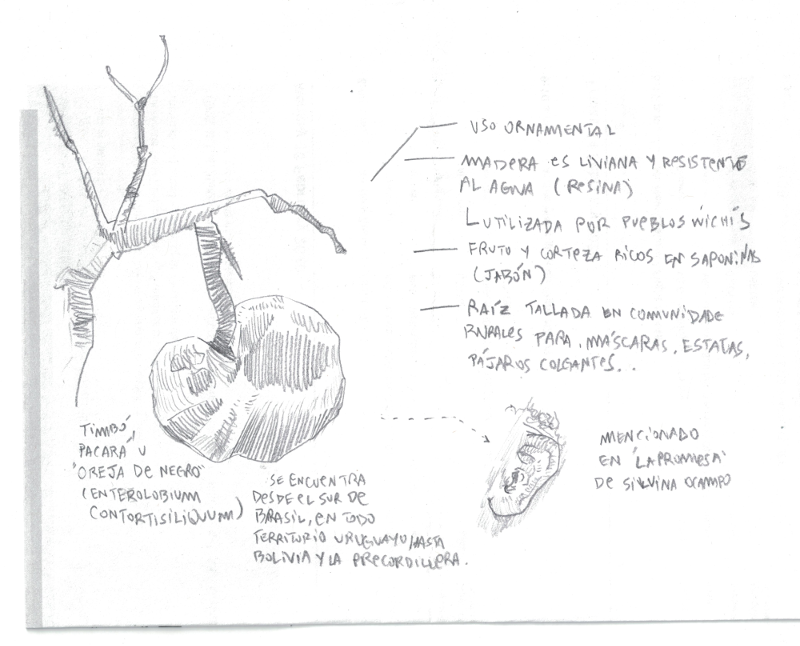 USO ORNAMENTAL
MADERA ES LIVIANA Y RESISTENTE
AL AGUA (RESINA)
UTILIZADA POR PUEBLOS WICHIS
FRUTO Y CORTEZA RICOS EN SAPONINAS
(JABÓN)
RAÍZ TALLADA EN COMUNIDADE
RURALES PARA, MÁSCARAS, ESTATAS,
PÁJAROS COLGANTES..
TIMBÓ,
PACARA U
"OREJA DE NEGRO"
(ENTEROLOBIUM
CONTORTISILIQUUM)
SE ENCUENTRA
DESDE EL SUR DE
BRASIL, EN TODO
TERRITORIO URUGUAYO/HASTA
BOLIVIA Y LA PRECORDILLERA.
MENCIONADO
EN "LA PROMESA"
DE SILVINA OCAMPO